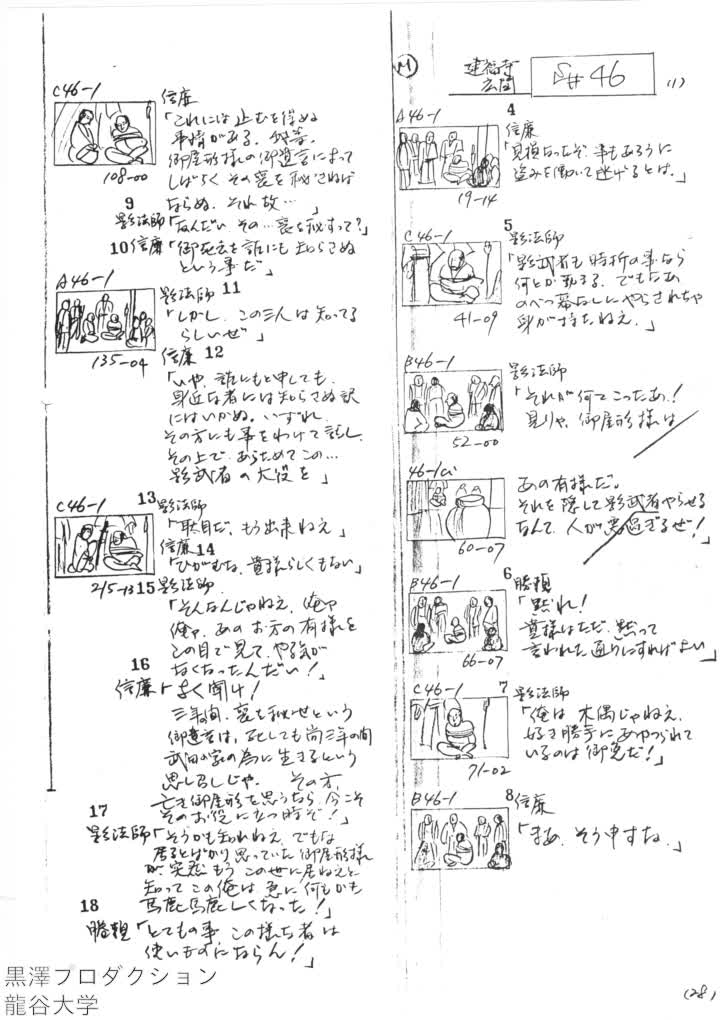 M
建福寺
広間
S# 46
(1)
A46-1
4
信廉
「見損なったぞ、事もあろうに
盗みを働いて逃げるとは。」
19-14
C46-1
5
影法師
「影武者も時折の事なら
何とか勤まる、でもなあ
のべつ幕なしにやらされちゃ
身が持たねえ。」
41-09
B46-1
影法師
「それが何てこったあ!
見りゃ、御屋形様は
52-00
46-1
あの有様だ。
それを隠して影武者やらせる
なんて、人が悪過ぎるぜ!」
60-07
B46-1
6
勝頼
「黙れ!
貴様はただ、黙って
言われた通りにすればよい」
66-07
C46-1
7
影法師
「俺は 木偶じゃねえ、
好き勝手にあやつられて
いるのは御免だ!」
71-02
B46-1
8
信廉
「まあ、そう申すな。」
(28)
C46-1
信廉
「これには止むを得ぬ
事情がある、
御屋形様の御遺言によって
しばらく その喪を秘さねば
ならぬ、それ故…」
108-00
9
影法師「なんだい その…喪を秘すって?」
10 信廉「御死去を誰にも知らさぬ
という事だ」
A46-1
影法師 11
「しかし、この三人は知ってる
らしいぜ」
135-04
信廉 12
「いや、誰にもと申しても、
身近な者には知らさぬ訳
にはいかぬ。いずれ、
その方にも事をわけて話し、
その上で、あらためてこの…
影武者の大役を」
C46-1
13 影法師
「駄目だ、もう出来ねえ」
信廉 14
「ひがむな、貴様らしくもない」
215-13
15 影法師
「そんなんじゃねえ、俺や
俺や、あの お方の有様を
この目で見て、やる気が
なくなったんだい!」
16
信廉「よく聞け!
三年の間、喪を秘せという
御遺言は、死しても尚三年の間
武田の家の為に生きるという
思し召しじゃ。 その方、
亡き御屋形を思うなら、今こそ
そのお役に立つ時ぞ!」
17
影法師「そうかも知れねえ、でもな
居るとばかり思っていた御屋形様
が、突然もう この世に居ねえと
知って この俺は 急に何もかも
馬鹿馬鹿しくなった!」
18
勝頼「とてもの事 この様な者は
使いものにならん!」
黒澤プロダクション
龍谷大学